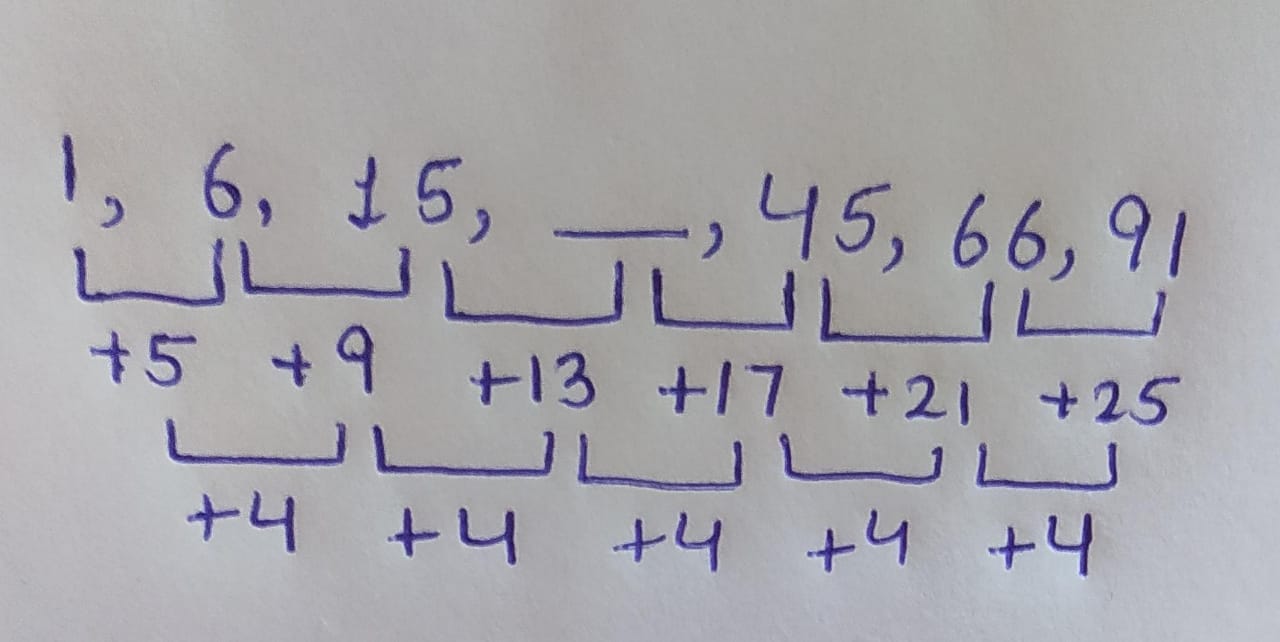 1, 6, 15, __, 45, 66, 91
+5 +9 +13 +17 +21 +25
+4 +4 +4 +4 +4